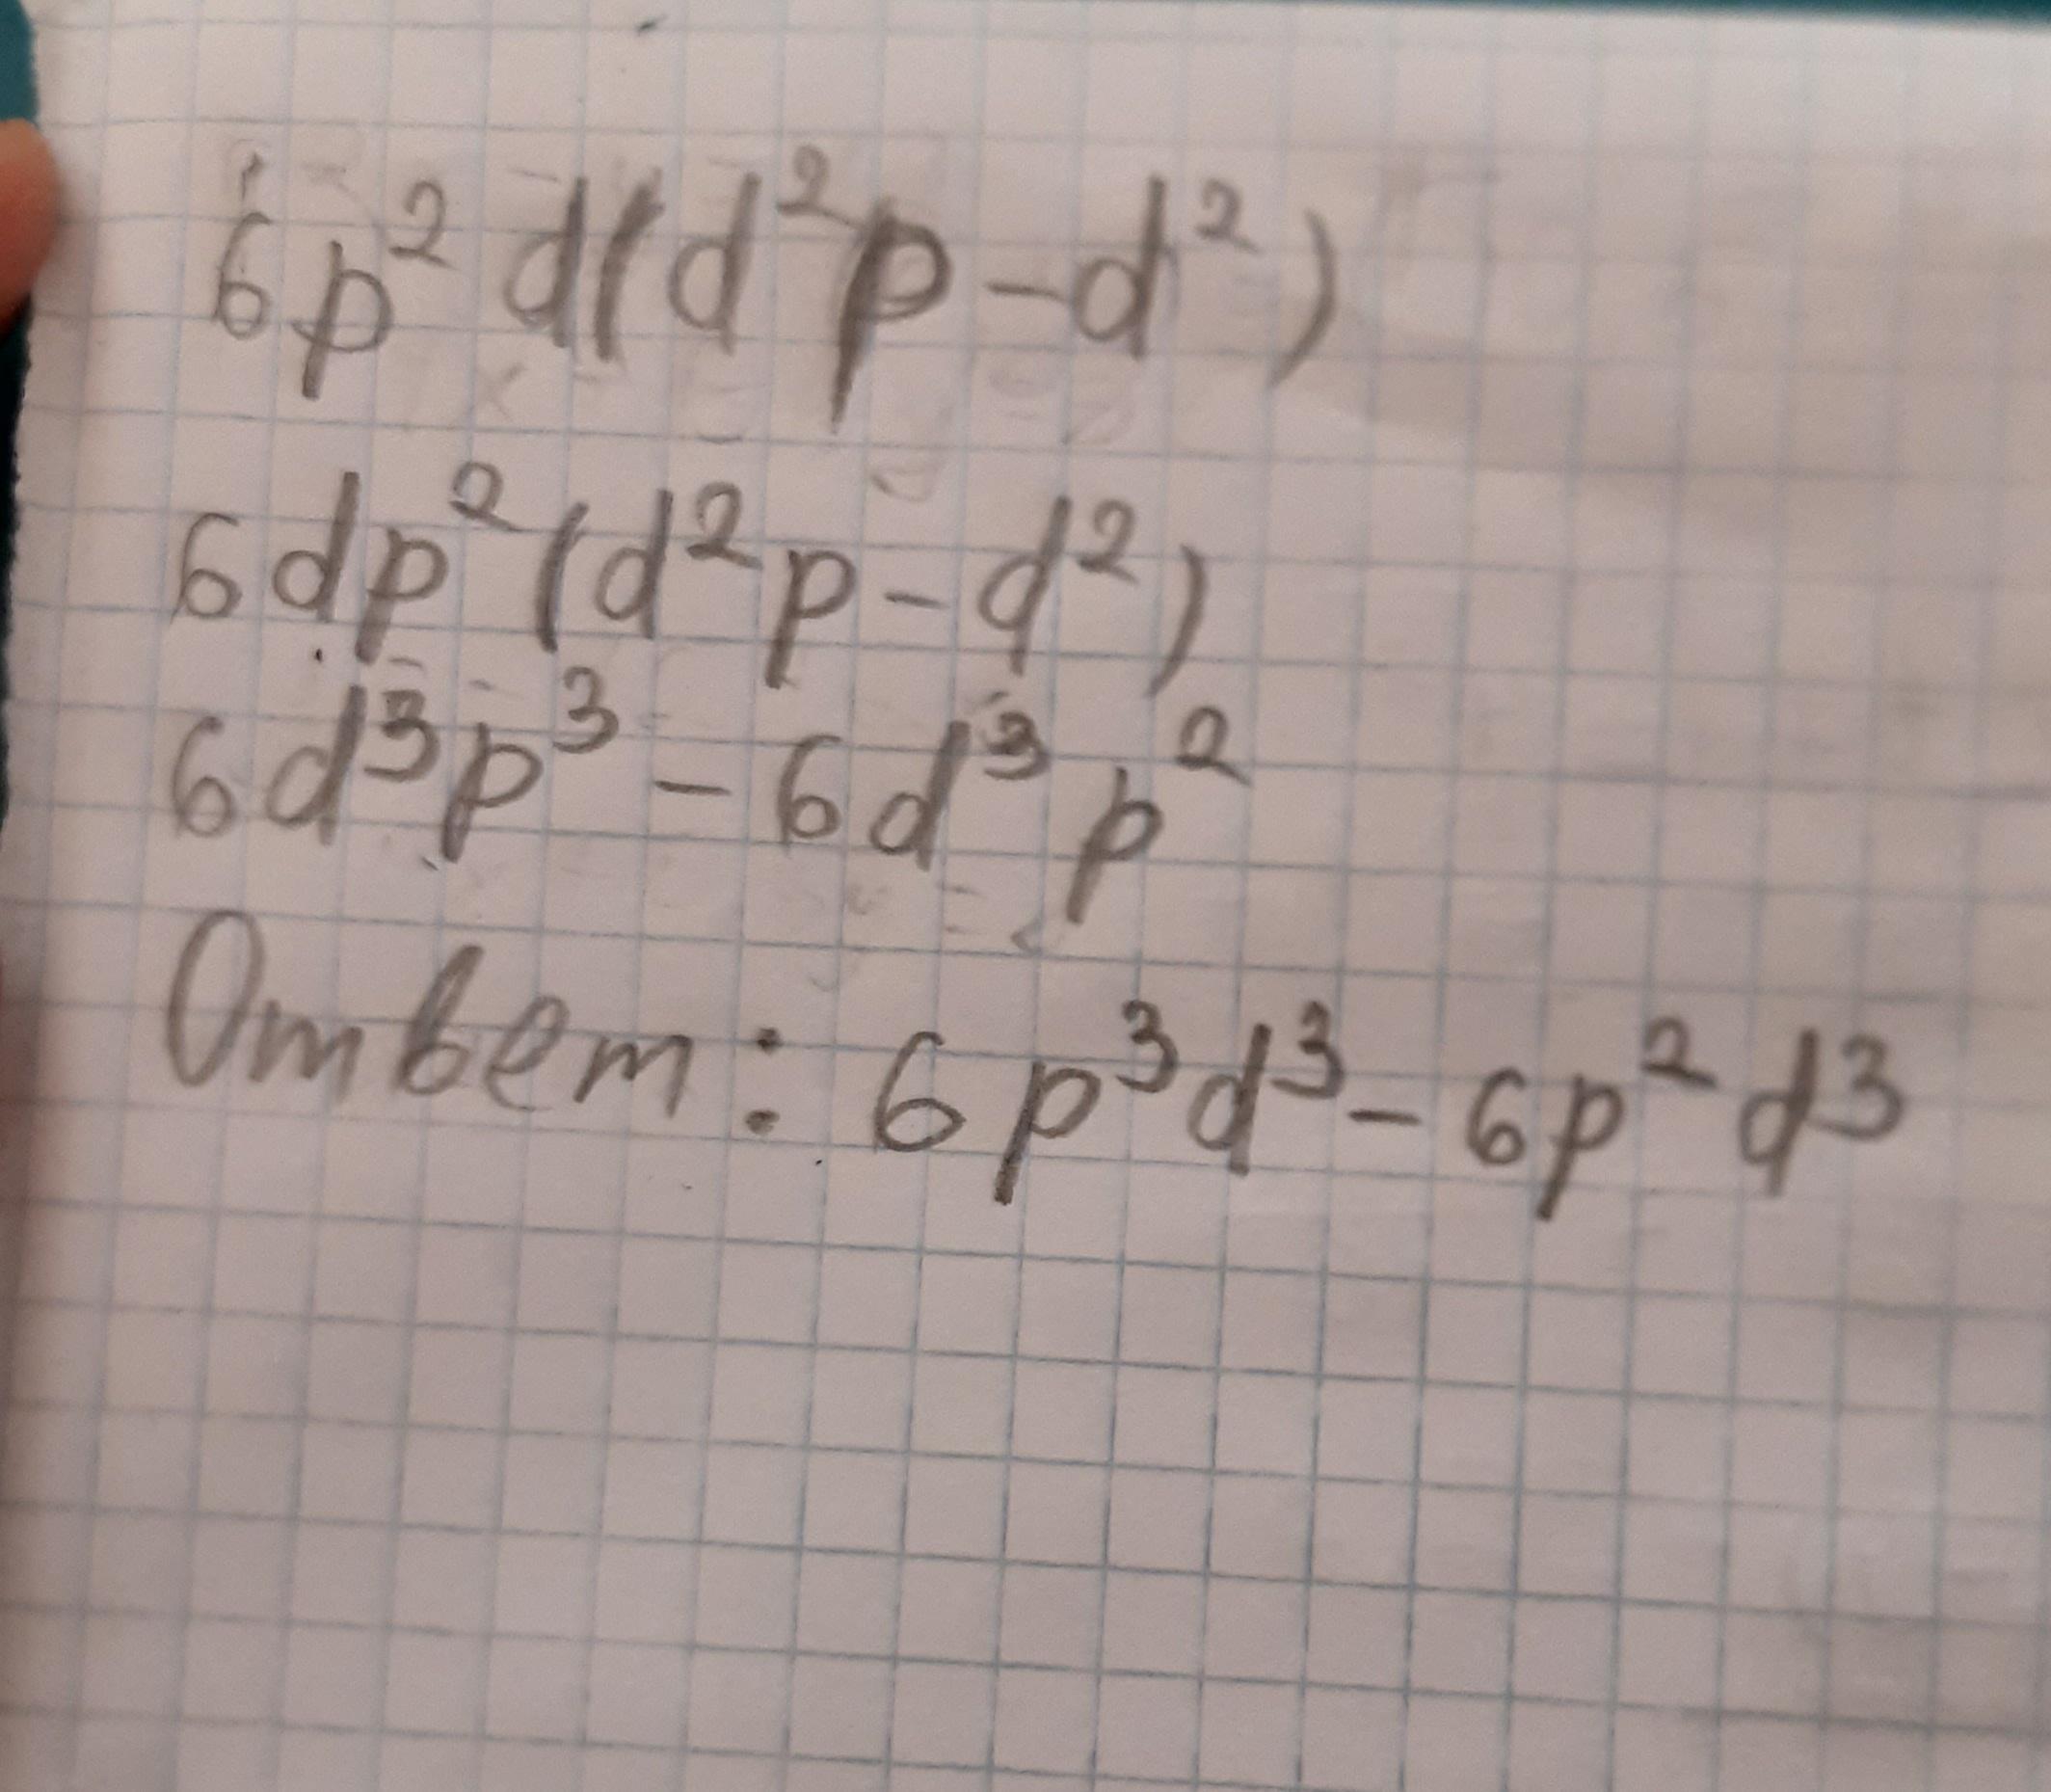 6p²d(d²p-d²)
6dp²(d²p-d²)
6d³p³-6d³p²
Ответ: 6p³d³-6p²d³